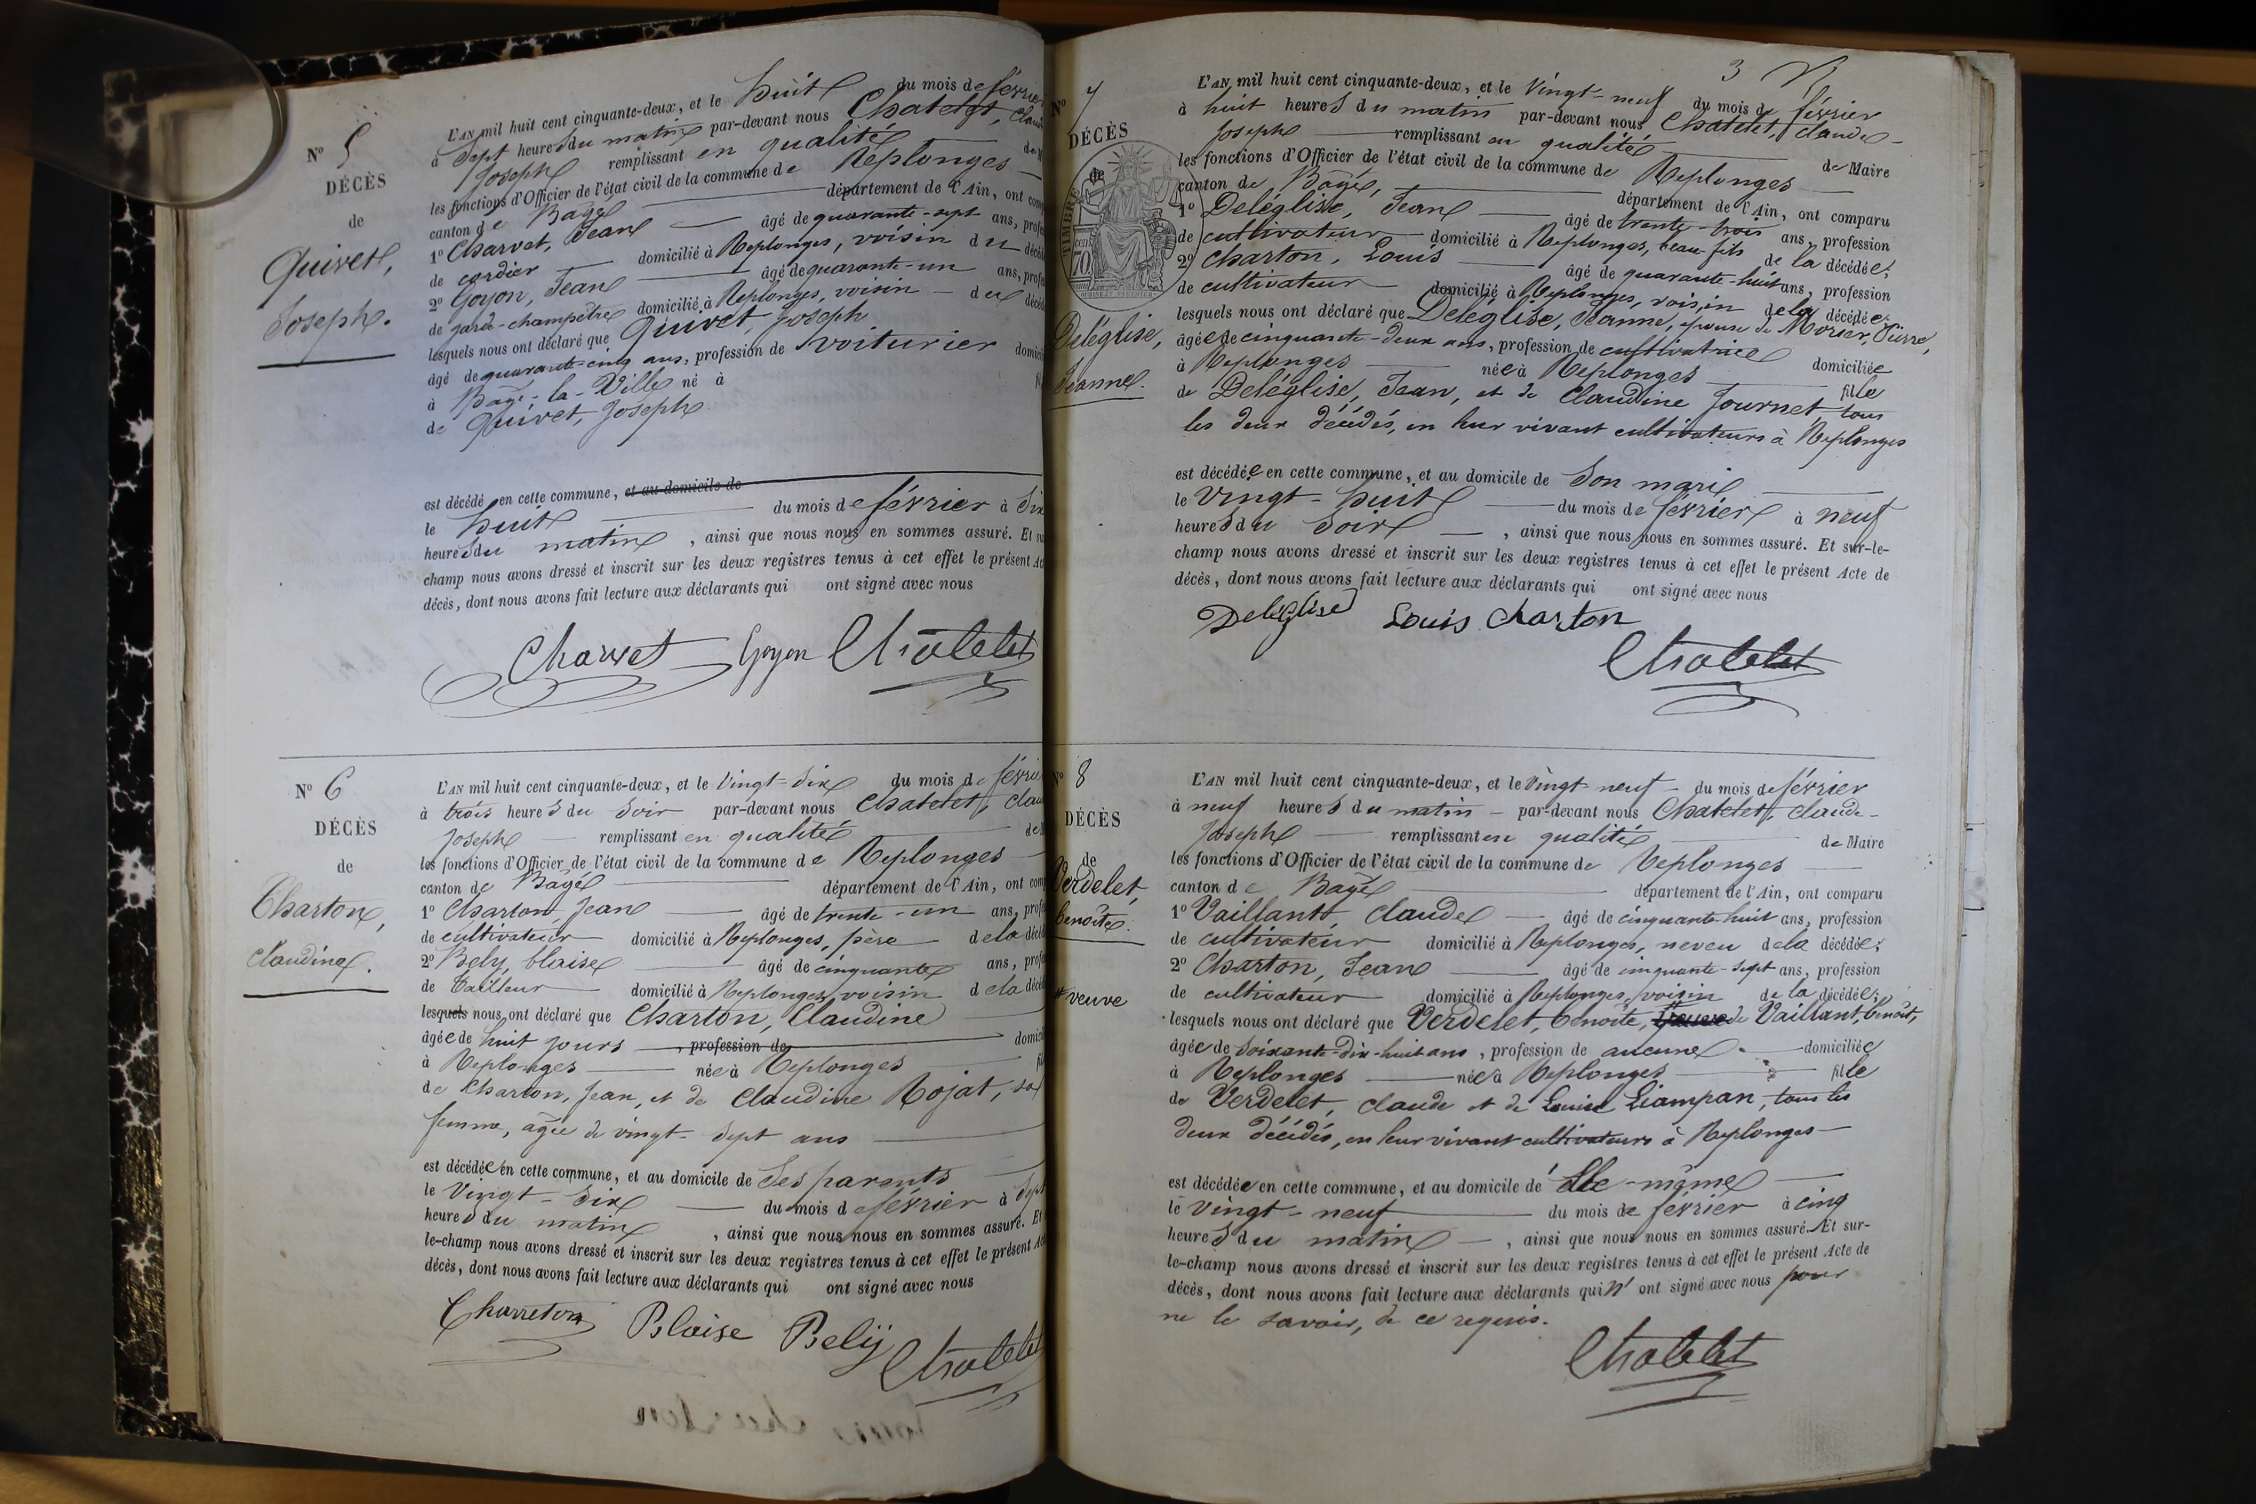 N° 5
DÉCÈS
de
Quivet,
Joseph.
L'AN mil huit cent cinquante-deux, et le huit du mois de février
à sept heures du matin par-devant nous Chatelet, Claude
Joseph remplissant en qualité de M
les fonctions d'Officier de l'état civil de la commune de Replonges
canton de Bagé département de l'Ain, ont comp
1° Charvet, Jean âgé de quarante-sept ans, profe
de cordier domicilié à Replonges, voisin du décéd
2° Goyon, Jean âgé de quarante-un ans, profe
de garde-champêtre domicilié à Replonges, voisin du décéd
lesquels nous ont déclaré que Quivet, Joseph
âgé de quarante-cinq ans, profession de voiturier domicil
à Bagé-la-Ville né à
de Quivet, Joseph
est décédé en cette commune, et au domicile de
le huit du mois de février à six
heures du matin, ainsi que nous nous en sommes assuré. Et su
champ nous avons dressé et inscrit sur les deux registres tenus à cet effet le présent Ac
décès, dont nous avons fait lecture aux déclarants qui ont signé avec nous
Charvet Goyon Chatelet
N° 6
DÉCÈS
de
Charton,
Claudine.
L'AN mil huit cent cinquante-deux, et le vingt-six du mois de févrie
à trois heures du soir par-devant nous Chatelet, Clau
Joseph remplissant en qualité de M
les fonctions d'Officier de l'état civil de la commune de Replonges
canton de Bagé département de l'Ain, ont comp
1° Charton, Jean âgé de trente-un ans, profe
de cultivateur domicilié à Replonges, père de la décéd
2° Bely, blaise âgé de cinquante ans, profe
de tailleur domicilié à Replonges, voisin de la décéd
lesquels nous ont déclaré que Charton, Claudine
âgée de huit jours, profession de domici
à Replonges née à Replonges fil
de Charton, Jean, et de Claudine Rojat, sa
femme, âgée de vingt-sept ans
est décédée en cette commune, et au domicile de ses parents
le vingt-six du mois de février à sept
heures du matin, ainsi que nous nous en sommes assuré. Et
le-champ nous avons dressé et inscrit sur les deux registres tenus à cet effet le présent Ac
décès, dont nous avons fait lecture aux déclarants qui ont signé avec nous
Charreton Blaise Belÿ Chatelet
3
N° 7
DÉCÈS
de
TIMBRE
70
Deléglise,
Jeanne.
L'AN mil huit cent cinquante-deux, et le vingt-neuf du mois de février
à huit heures du matin par-devant nous Chatelet, Claude-
Joseph remplissant en qualité de Maire
les fonctions d'Officier de l'état civil de la commune de Replonges
canton de Bagé, département de l'Ain, ont comparu
1° Deléglise, Jean âgé de trente-trois ans, profession
de cultivateur domicilié à Replonges, beau-fils de la décédée;
2° Charton, Louis âgé de quarante-huit ans, profession
de cultivateur domicilié à Replonges, voisin de la décédée;
lesquels nous ont déclaré que Deléglise, Jeanne, épouse de Morier, Pierre,
âgée de cinquante-deux ans, profession de cultivatrice domiciliée
à Replonges née à Replonges fille
de Deléglise, Jean, et de Claudine Journet, tous
les deux décédés, en leur vivant cultivateurs à Replonges
est décédée en cette commune, et au domicile de son mari
le vingt-huit du mois de février à neuf
heures du soir, ainsi que nous nous en sommes assuré. Et sur-le-
champ nous avons dressé et inscrit sur les deux registres tenus à cet effet le présent Acte de
décès, dont nous avons fait lecture aux déclarants qui ont signé avec nous
Deléglise Louis Charton
Chatelet
N° 8
DÉCÈS
de
Verdelet,
benoîte.
veuve
L'AN mil huit cent cinquante-deux, et le vingt-neuf du mois de février
à neuf heures du matin par-devant nous Chatelet, Claude-
Joseph remplissant en qualité de Maire
les fonctions d'Officier de l'état civil de la commune de Replonges
canton de Bagé département de l'Ain, ont comparu
1° Vaillant, Claude âgé de cinquante-huit ans, profession
de cultivateur domicilié à Replonges, neveu de la décédée;
2° Charton, Jean âgé de cinquante-sept ans, profession
de cultivateur domicilié à Replonges, voisin de la décédée;
lesquels nous ont déclaré que Verdelet, benoîte, de Vaillant, benoît,
âgée de soixante-dix-huit ans, profession de aucune domiciliée
à Replonges née à Replonges fille
de Verdelet, Claude et de Louise Liampan, tous les
deux décédés, en leur vivant cultivateurs à Replonges
est décédée en cette commune, et au domicile de elle-même
le vingt-neuf du mois de février à cinq
heures du matin, ainsi que nous nous en sommes assuré. Et sur-
le-champ nous avons dressé et inscrit sur les deux registres tenus à cet effet le présent Acte de
décès, dont nous avons fait lecture aux déclarants qui n'ont signé avec nous pour
ne le savoir, de ce requis.
Chatelet